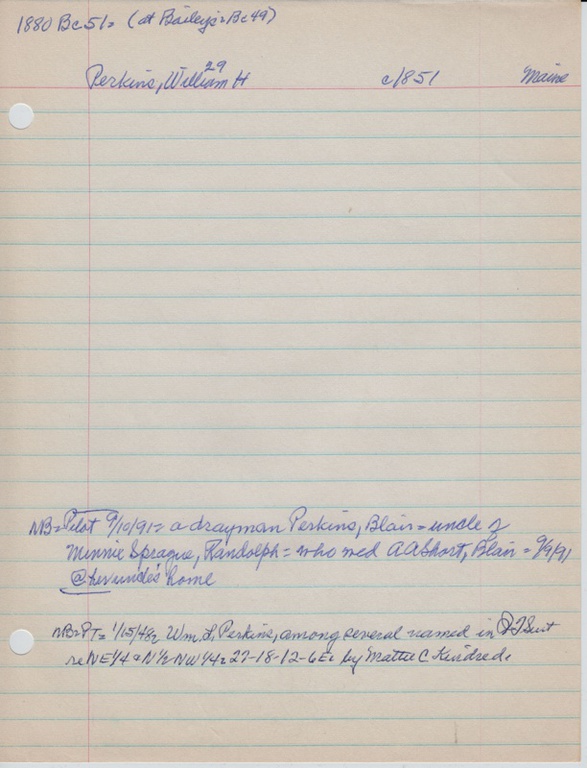 1880 Bc51= (at Bailey's=Bc49)
Perkins, William H 29 c/851 Maine
NB=Pilot 9/10/91= a drayman Perkins, Blair=uncle of
Minnie Sprague, Randolph= who wed AAShort, Blair = 9/9/91
@her uncle's home
NB=PT= 1/15/48= Wm.H, Perkins, among several named in QTSuit
re NE1/4 & N1/2 NW1/4= 27-18-12-6E= by Mattie C Kindred.